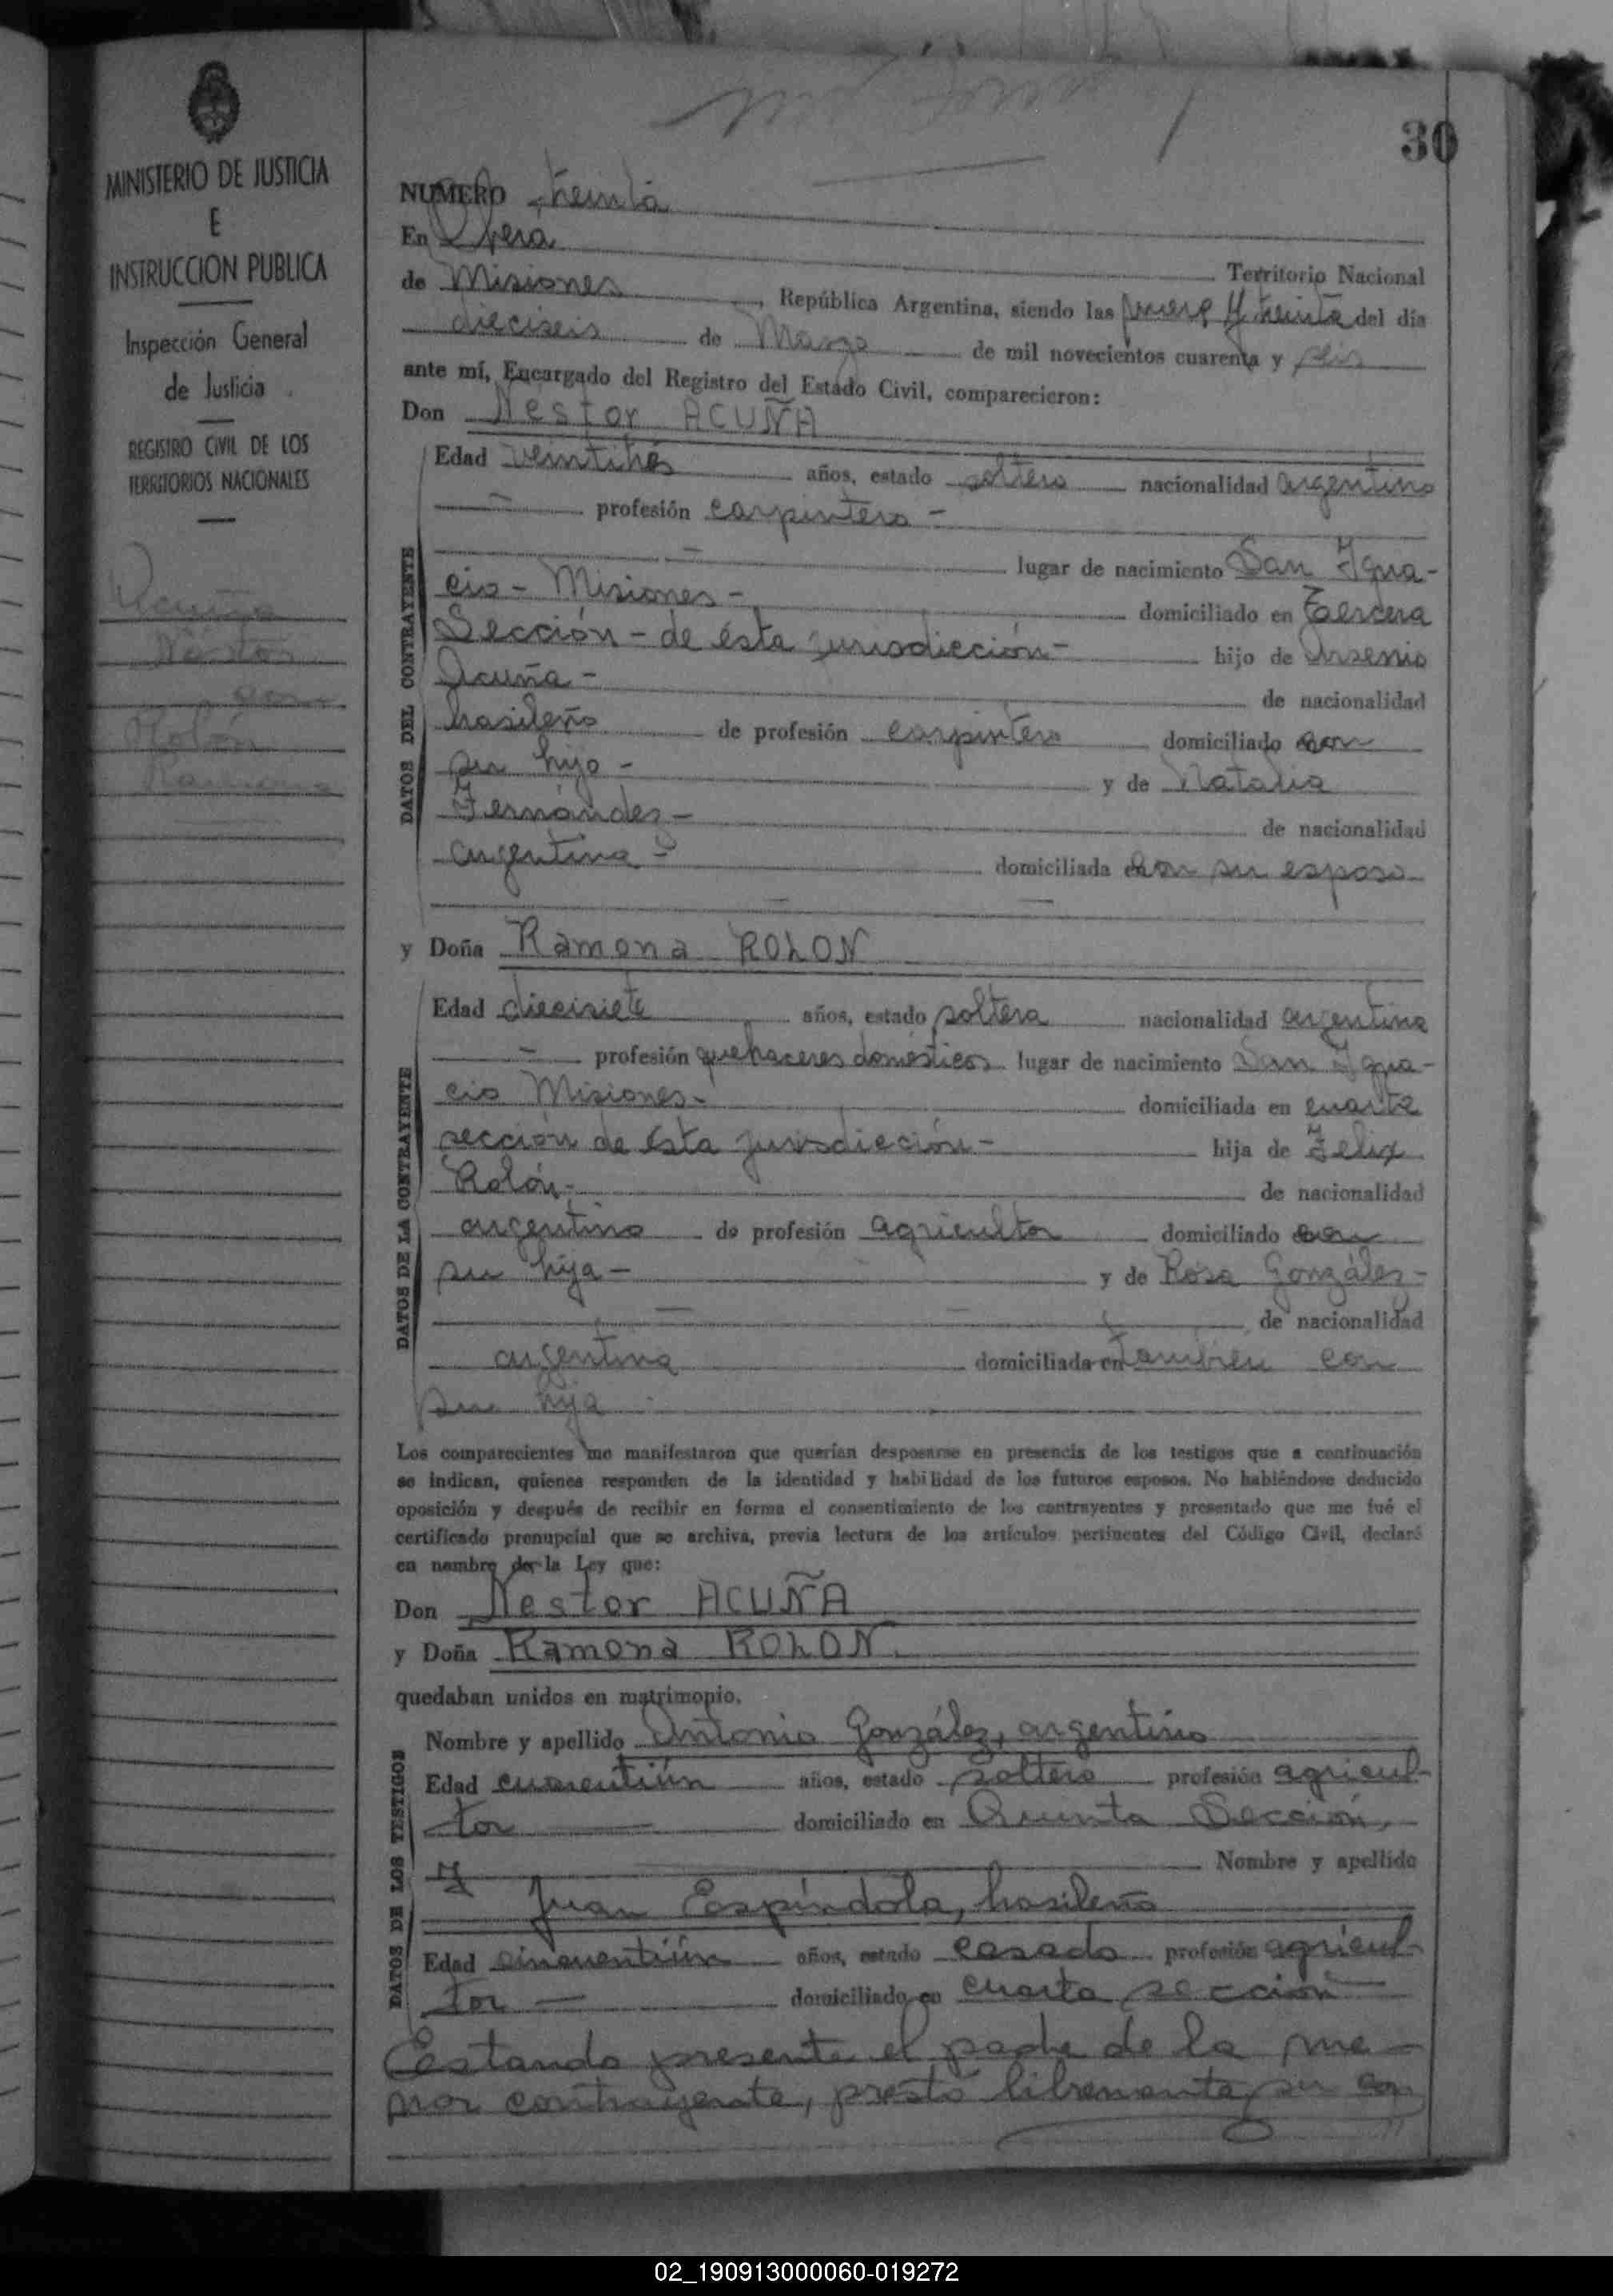 30
MINISTERIO DE JUSTICIA
E
INSTRUCCION PUBLICA
Inspección General
de Justicia
REGISTRO CIVIL DE LOS
TERRITORIOS NACIONALES
Acuña
Néstor
con
Rolón
Ramona
NUMERO treinta
En Obera Territorio Nacional
de Misiones, República Argentina, siendo las nueve y treinta del día
dieciseis de Marzo de mil novecientos cuarenta y seis
ante mí, Encargado del Registro del Estado Civil, comparecieron:
Don Nestor ACUÑA
DATOS DEL CONTRAYENTE
Edad veintitrés años, estado soltero nacionalidad argentino
- profesión carpintero -
- lugar de nacimiento San Igna-
cio - Misiones - domiciliado en Tercera
Sección - de ésta jurisdicción - hijo de Arsenio
Acuña - de nacionalidad
brasileño de profesión carpintero domiciliado con
su hijo - y de Natalia
Fernández - de nacionalidad
argentina - domiciliada con su esposo
y Doña Ramona ROLON
DATOS DE LA CONTRAYENTE
Edad diecisiete años, estado soltera nacionalidad argentina
- profesión quehaceres domésticos lugar de nacimiento San Igna-
cio Misiones - domiciliada en cuarta
sección de ésta jurisdicción - hija de Felix
Rolón - de nacionalidad
argentino de profesión agricultor domiciliado con
su hija - y de Rosa González -
- de nacionalidad
argentina domiciliada en también con
su hija
Los comparecientes me manifestaron que querían desposarse en presencia de los testigos que a continuación
se indican, quienes responden de la identidad y habilidad de los futuros esposos. No habiéndose deducido
oposición y después de recibir en forma el consentimiento de los contrayentes y presentado que me fué el
certificado prenupcial que se archiva, previa lectura de los artículos pertinentes del Código Civil, declaré
en nombre de la Ley que:
Don Nestor ACUÑA
y Doña Ramona ROLON
quedaban unidos en matrimonio.
DATOS DE LOS TESTIGOS
Nombre y apellido Antonio González, argentino
Edad cuarentiún años, estado soltero profesión agricul-
tor domiciliado en Quinta Sección,
y Nombre y apellido
Juan Espíndola, brasileño
Edad cincuentiún años, estado casado profesión agricul-
tor - domiciliado en cuarta sección
Estando presente el padre de la me-
nor contrayente, prestó libremente su con
02_190913000060-019272